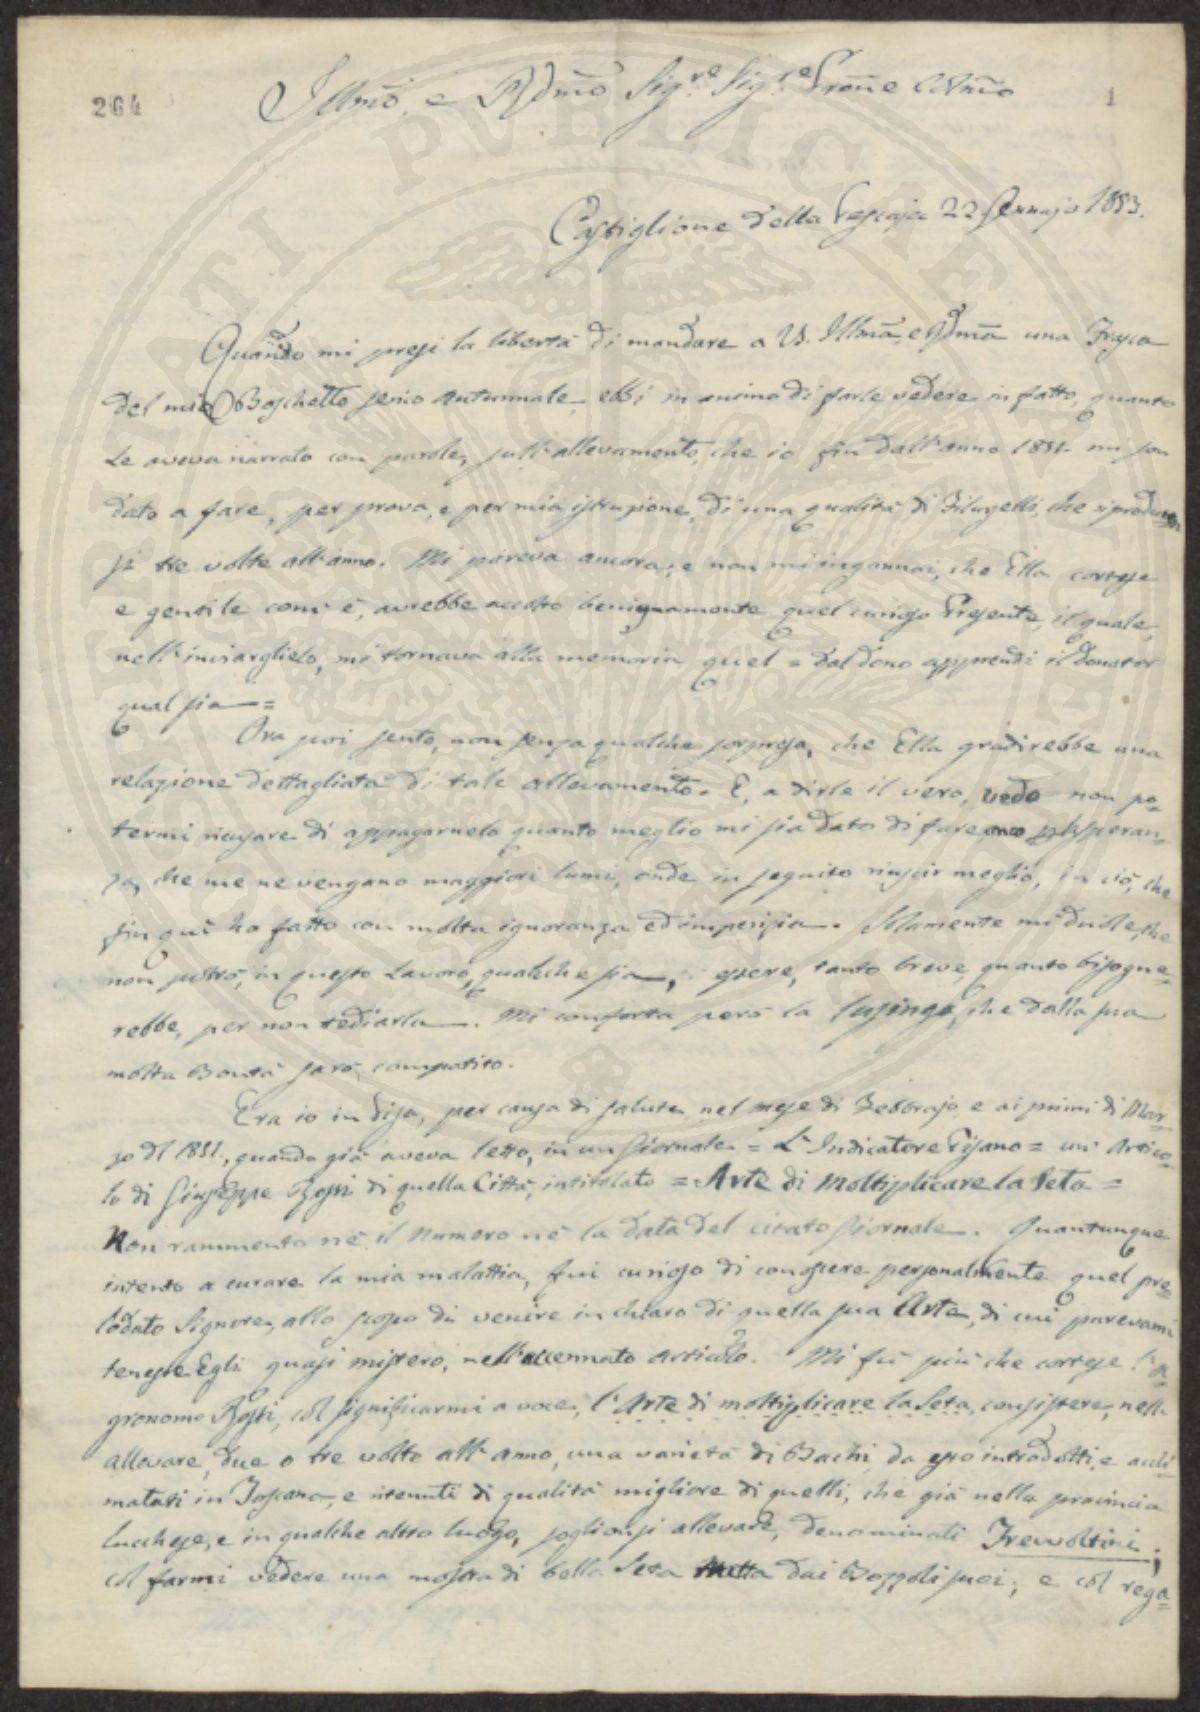 264
1
Illmõ. e Rdmõ Sig.re Sig.re Prõne Colmõ
Castiglione della Pescaja 22. Gennajo 1853.
Quando mi presi la libertà di mandare a V. S. Illmã, e Rdmã una Frasca
del mio Boschetto serico autunnale, ebbi in animo di farle vedere in fatto, quanto
Le aveva narrato con parole, sull'allevamento, che io fin dall'anno 1851. mi son
dato a fare, per prova, e per mia istruzione, di una qualità di Filugelli, che riproducon
si tre volte all'anno. Mi pareva ancora, e non mi ingannai, che Ella cortese
e gentile com'è, avrebbe accolto benignamente quel curioso Presente, il quale,
nell'inviarglielo, mi tornava alla memoria quel = dal dono apprendi il donator
qual sia =
Ora poi sento, non senza qualche sorpresa, che Ella gradirebbe una
relazione dettagliata di tale allevamento. E, a dirle il vero, vedo non po-
termi ricusare di appagarnelo quanto meglio mi sia dato di fare, speran-
za, che me ne vengano maggiori lumi, onde in seguito riuscir meglio, in ciò, che
fin quì ho fatto con molta ignoranza ed imperizia. Solamente mi duole, che
non potrò, in questo Lavoro, qualche sia, essere, tanto breve, quanto bisogne-
rebbe, per non tediarla. Mi conforta però la lusinga, che dalla sua
molta Bontà sarò compatito.
Era io in Pisa, per causa di salute, nel mese di Febbrajo, e ai primi di Mar-
zo dl 1851., quando già aveva letto, in un Giornale = L'Indicatore Pisano = un' Artico-
lo di Giuseppe Rossi di quella Città, intitolato = Arte di Moltiplicare la Seta =
Non rammento nè il Numero nè la data del citato Giornale. Quantunque
intento a curare la mia malattia, fui curioso di conoscere personalmente quel pre-
lodato Signore, allo scopo di venire in chiaro di quella sua Arte, di cui parevami
tenesse Egli quasi mistero, nell'accennato Articolo. Mi fù più che cortese l'a-
gronomo Rossi, col significarmi a voce, l'Arte di moltiplicare la Seta, consistere, nell'
allevare, due o tre volte all'anno, una varietà di Bachi, da esso introdotti, e accli-
matati in Toscana, e ritenuti di qualità migliore di quelli, che già nella provincia
lucchese, e in qualche altro luogo, soglionsi allevare, denominati Trevoltini;
col farmi vedere una mostra di bella Seta tratta dai Bozzoli suoi; e col rega-